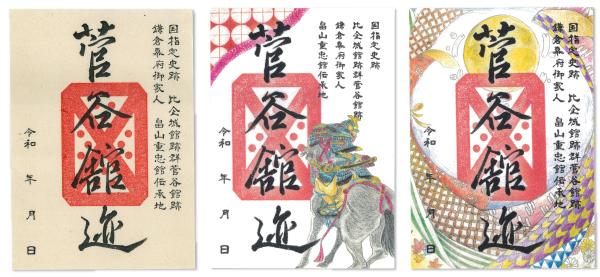 国指定史跡 比企城館跡群菅谷館跡
鎌倉幕府御家人 畠山重忠館伝承地
菅谷館迹
令和 年 月 日
国指定史跡
比企城館跡群菅谷館跡
鎌倉幕府御家人
畠山重忠館伝承地
菅谷館迹
令和 年 月 日
国指定史跡 比企城館跡群菅谷館跡
鎌倉幕府御家人 畠山重忠館伝承地
菅谷館迹
令和 年 月 日